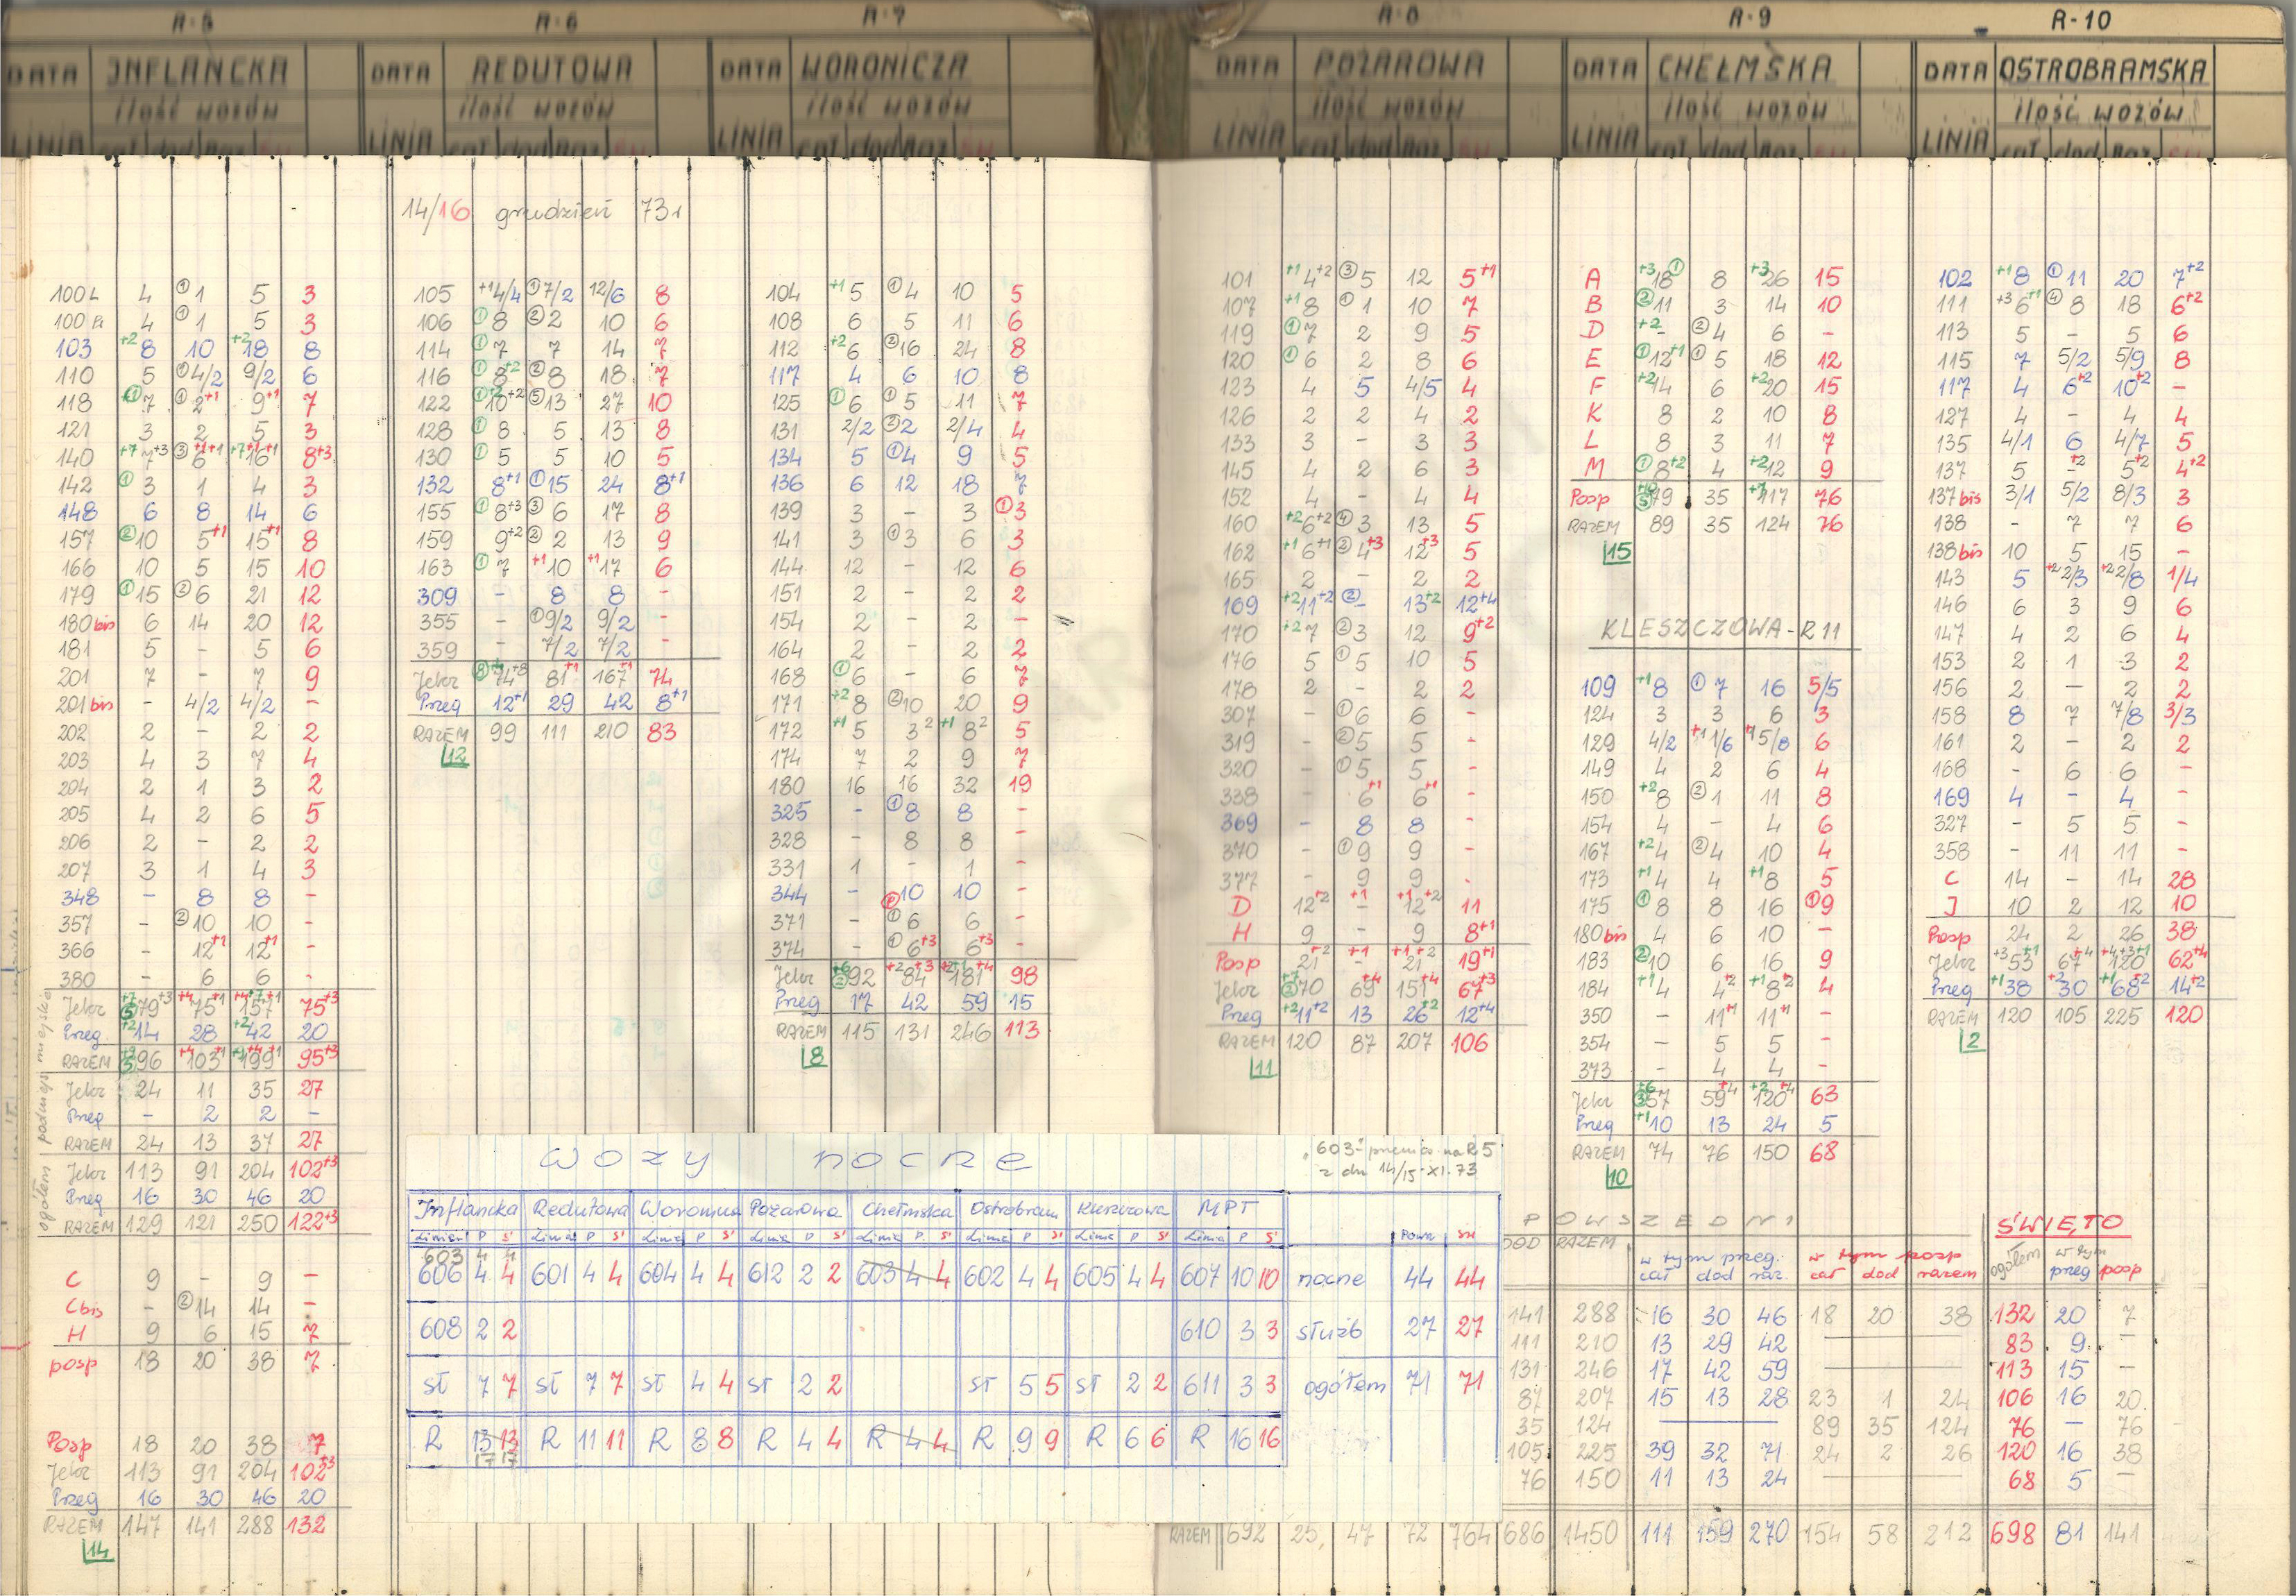 R-5 R-6 R-7 R-8 R-9 R-10
DATA INFLANCKA DATA REDUTOWA DATA WORONICZA DATA POŻAROWA DATA CHEŁMSKA DATA OSTROBRAMSKA
ilość wozów ilość wozów ilość wozów ilość wozów ilość wozów ilość wozów
LINIA LINIA LINIA LINIA LINIA LINIA
14/16 grudzień 73r
100 4 ① 1 5 3
100 4 ① 1 5 3
103 +2 8 10 +2 18 8
110 5 ① 4/2 9/2 6
118 ① 7 ① 2+1 9+1 7
121 3 2 5 3
140 +7 7+3 ③ 6 +1+1 +7 16 +1+1 8+3
142 ① 3 1 4 3
148 6 8 14 6
157 ② 10 5+1 15+1 8
166 10 5 15 10
179 ① 15 ② 6 21 12
180 bis 6 14 20 12
181 5 - 5 6
201 7 - 7 9
201 bis - 4/2 4/2 -
202 2 - 2 2
203 4 3 7 4
204 2 1 3 2
205 4 2 6 5
206 2 - 2 2
207 3 1 4 3
348 - 8 8 -
357 - ② 10 10 -
366 - 12+1 12+1 -
380 - 6 6 -
Jelcz 79+3 75 157 75+3
Przeg +2 14 28 +2 42 20
RAZEM 96 103 199 95+3
Jelcz 24 11 35 27
Przeg - 2 2 -
RAZEM 24 13 37 27
Jelcz 113 91 204 102+3
Przeg 16 30 46 20
RAZEM 129 121 250 122+3
ogółem podmiejskie
C 9 - 9 -
C bis - ② 14 14 -
H 9 6 15 7
posp 18 20 38 7
Posp 18 20 38 7
Jelcz 113 91 204 102+3
Przeg 16 30 46 20
RAZEM 147 141 288 132
14
105 +1 4/4 ① 7/2 12/6 8
106 ① 8 ② 2 10 6
114 ① 7 7 14 7
116 ① 8+2 ② 8 18 7
122 ① 10+2 ⑤ 13 27 10
128 ① 8 5 13 8
130 ① 5 5 10 5
132 8+1 ① 15 24 8+1
155 ① 8+3 ③ 6 17 8
159 9+2 ② 2 13 9
163 ① 7 +1 10 +1 17 6
309 - 8 8 -
355 - ① 9/2 9/2 -
359 - 7/2 7/2 -
Jelcz ⑧ 74+8 81+1 167+1 74
Przeg 12+1 29 42 8+1
RAZEM 99 111 210 83
12
104 +1 5 ① 4 10 5
108 6 5 11 6
112 +2 6 ② 16 24 8
117 4 6 10 8
125 ① 6 ① 5 11 7
131 2/2 ② 2 2/4 4
134 5 ① 4 9 5
136 6 12 18 7
139 3 - 3 ① 3
141 3 ① 3 6 3
144 12 - 12 6
151 2 - 2 2
154 2 - 2 -
164 2 - 2 2
168 ① 6 - 6 7
171 +2 8 ② 10 20 9
172 +1 5 3² +1 8² 5
174 7 2 9 7
180 16 16 32 19
325 - ① 8 8 -
328 - 8 8 -
331 1 - 1 -
344 - 10 10 -
371 - ① 6 6 -
374 - ① 6+3 6+3 -
Jelcz +6 ② 92 +2 84+3 181+4 98
Przeg 17 42 59 15
RAZEM 115 131 246 113
8
101 +1 4+2 ③ 5 12 5+1
107 +1 8 ① 1 10 7
119 ① 7 2 9 5
120 ① 6 2 8 6
123 4 5 4/5 4
126 2 2 4 2
133 3 - 3 3
145 4 2 6 3
152 4 - 4 4
160 +2 6+2 ④ 3 13 5
162 +1 6+1 ② 4+3 12+3 5
165 2 - 2 2
169 +2 11+2 ② - 13+2 12+4
170 +2 7 ② 3 12 9+2
176 5 ① 5 10 5
178 2 - 2 2
307 - ① 6 6 -
319 - ② 5 5 -
320 - ① 5 5 -
338 - 6+1 6+1 -
369 - 8 8 -
370 - ① 9 9 -
377 - 9 9 -
D 12+2 +1 - +1 12+2 11
H 9 - 9 8+1
Posp 21+2 +1 - +1 21+2 19+1
Jelcz +7 70 69+4 151+4 67+3
Przeg +2 11+2 13 26+2 12+4
RAZEM 120 87 207 106
11
A +3 18 ① 8 +3 26 15
B ② 11 3 14 10
D +2 - ② 4 6 -
E ① 12+1 ① 5 18 12
F +2 14 6 +2 20 15
K 8 2 10 8
L 8 3 11 7
M ① 8+2 4 +2 12 9
Posp +10 79 35 +7 117 76
RAZEM 89 35 124 76
15
KLESZCZOWA - R 11
109 +1 8 ① 7 16 5/5
124 3 3 6 3
129 4/2 +1 1/6 +1 5/8 6
149 4 2 6 4
150 +2 8 ② 1 11 8
154 4 - 4 6
167 +2 4 ② 4 10 4
173 +1 4 4 +1 8 5
175 ① 8 8 16 ① 9
180 bis 4 6 10 -
183 ② 10 6 16 9
184 +1 4 4+2 +1 8+2 4
350 - 11+1 11+1 -
354 - 5 5 -
373 - 4 4 -
Jelcz +6 ③ 57 59+4 +2 120+4 63
Przeg +1 10 13 24 5
RAZEM 74 76 150 68
10
102 +1 8 ① 11 20 7+2
111 +3 6+1 ④ 8 18 6+2
113 5 - 5 6
115 7 5/2 5/9 8
117 4 6+2 10+2 -
127 4 - 4 4
135 4/1 6 4/7 5
137 5 -+2 5+2 4+2
137 bis 3/1 5/2 8/3 3
138 - 7 7 6
138 bis 10 5 15 -
143 5 +2 2/3 +2 2/8 1/4
146 6 3 9 6
147 4 2 6 4
153 2 1 3 2
156 2 - 2 2
158 8 7 7/8 3/3
161 2 - 2 2
168 - 6 6 -
169 4 - 4 -
327 - 5 5 -
358 - 11 11 -
C 14 - 14 28
J 10 2 12 10
Posp 24 2 26 38
Jelcz +3 53+1 67+4 120 62+4
Przeg +1 38 +2 30 +1 68+2 14+2
RAZEM 120 105 225 120
2
wozy nocne
"603" przenies. na R5
z dn 14/15·XI.73
Inflancka Redutowa Woronicza Pożarowa Chełmska Ostrobram Kleszczowa MPT
Linia P Ś Linia P Ś Linia P Ś Linia P Ś Linia P Ś Linia P Ś Linia P Ś Linia P Ś Pow. Św
603 4 4
606 4 4 601 4 4 604 4 4 612 2 2 603 4 4 602 4 4 605 4 4 607 10 10 nocne 44 44
608 2 2 610 3 3 służb 27 27
sł 7 7 sł 7 7 sł 4 4 sł 2 2 sł 5 5 sł 2 2 611 3 3 ogółem 71 71
R 13 13 R 11 11 R 8 8 R 4 4 R 4 4 R 9 9 R 6 6 R 16 16
17 17
POWSZEDNI ŚWIĘTO
DOD RAZEM w tym przeg. w tym posp ogółem w tym
cał dod raz. cał dod razem przeg posp
141 288 16 30 46 18 20 38 132 20 7
111 210 13 29 42 — 83 9 -
131 246 17 42 59 — 113 15 -
87 207 15 13 28 23 1 24 106 16 20
35 124 — 89 35 124 76 - 76
105 225 39 32 71 24 2 26 120 16 38
76 150 11 13 24 — 68 5 -
RAZEM 692 25, 47 72 764 686 1450 111 159 270 154 58 212 698 81 141